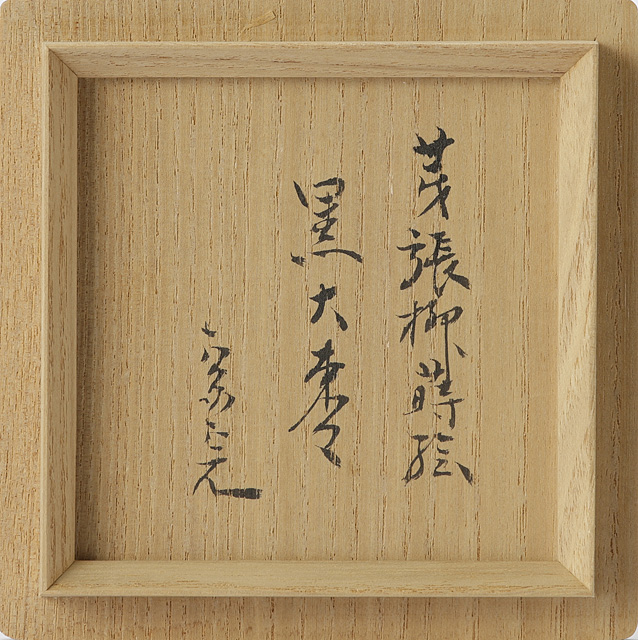 芽張柳蒔絵
黒大棗